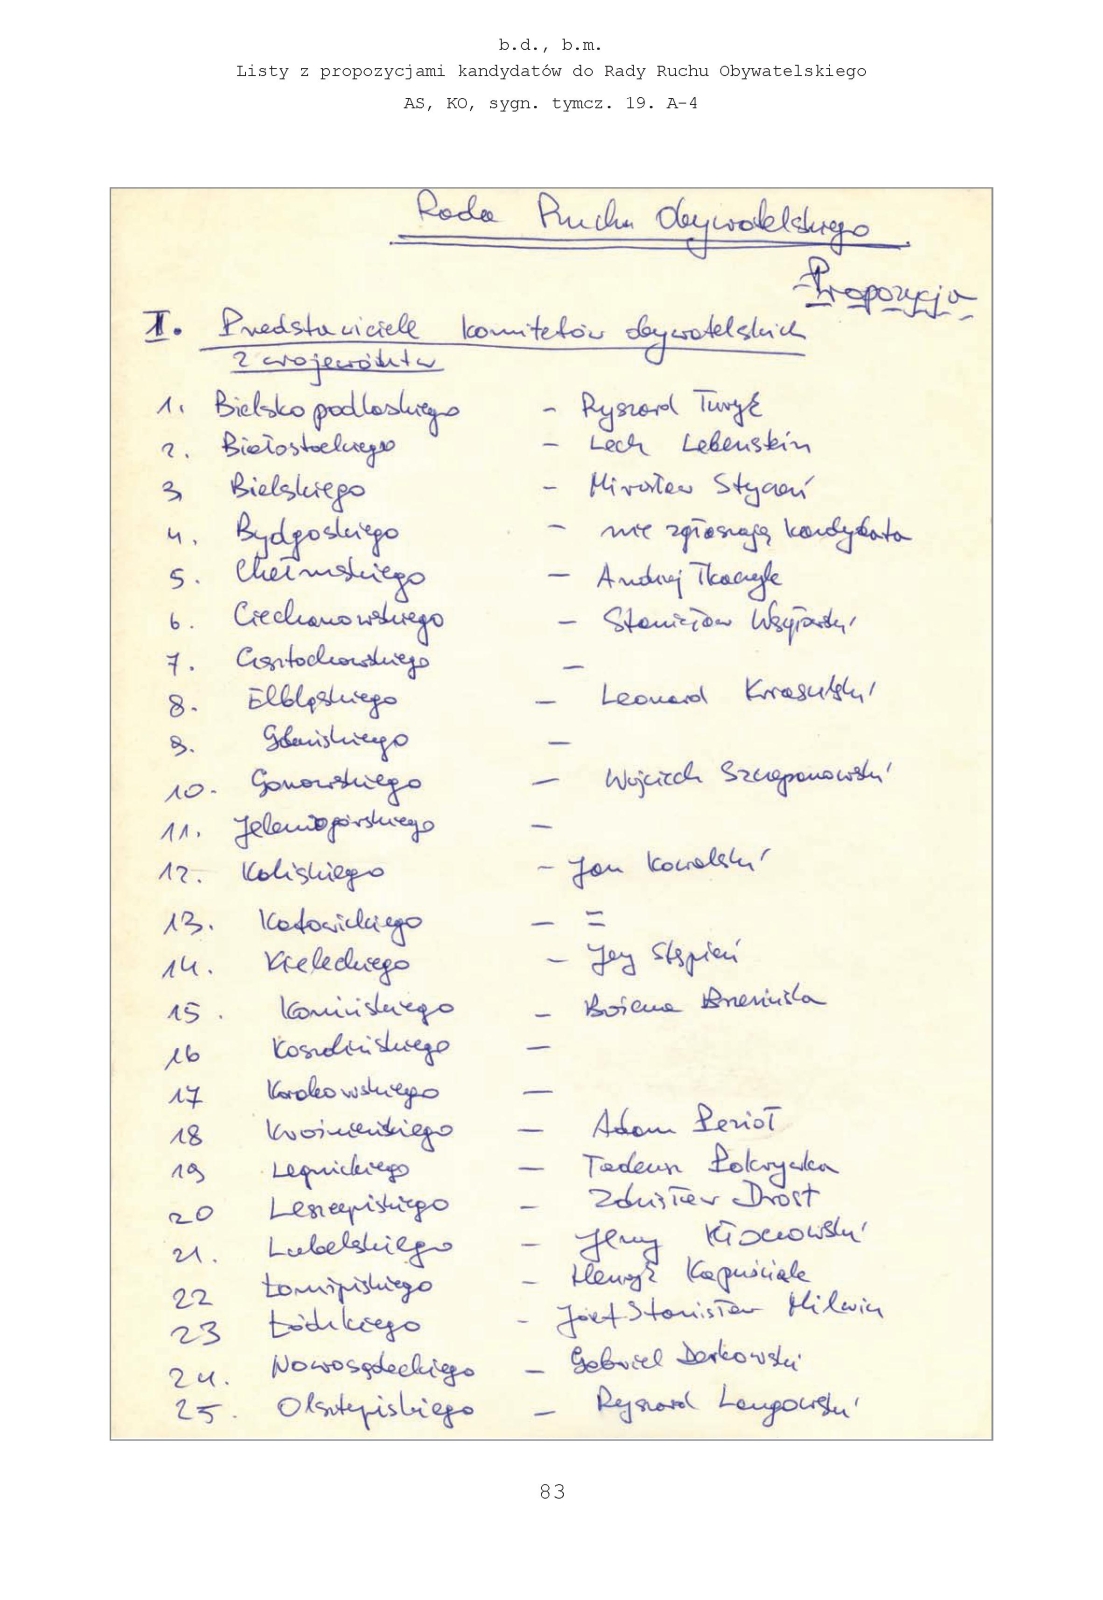 b.d., b.m.
Listy z propozycjami kandydatów do Rady Ruchu Obywatelskiego
AS, KO, sygn. tymcz. 19. A-4
Rada Ruchu Obywatelskiego
Propozycja
I. Przedstawiciele komitetów obywatelskich
z województw
1. Bielskopodlaskiego - Ryszard Turyk
2. Białostockiego - Lech Lebenstein
3 Bielskiego - Mirosław Styczeń
4. Bydgoskiego - nie zgłaszają kandydata
5. Chełmskiego - Andrzej Tkaczyk
6. Ciechanowskiego - Stanisław
7. Częstochowskiego -
8. Elbląskiego - Leonard Krasulski
9. Gdańskiego -
10. Gorzowskiego - Wojciech Szczepanowski
11. Jeleniogórskiego -
12. Kaliskiego - Jan Kowalski
13. Katowickiego - =
14. Kieleckiego - Jerzy Stępień
15. Konińskiego - Bożena Brzezińska
16 Koszalińskiego -
17 Krakowskiego -
18 Krośnieńskiego - Adam Pęzioł
19 Legnickiego - Tadeusz Pokrywka
20 Leszczyńskiego - Zdzisław Drost
21. Lubelskiego - Jerzy Kłoczowski
22 Łomżyńskiego - Henryk Kapuściak
23 Łódzkiego - Józef Stanisław
24. Nowosądeckiego - Gabriel Derkowski
25. Olsztyńskiego - Ryszard Langowski
83